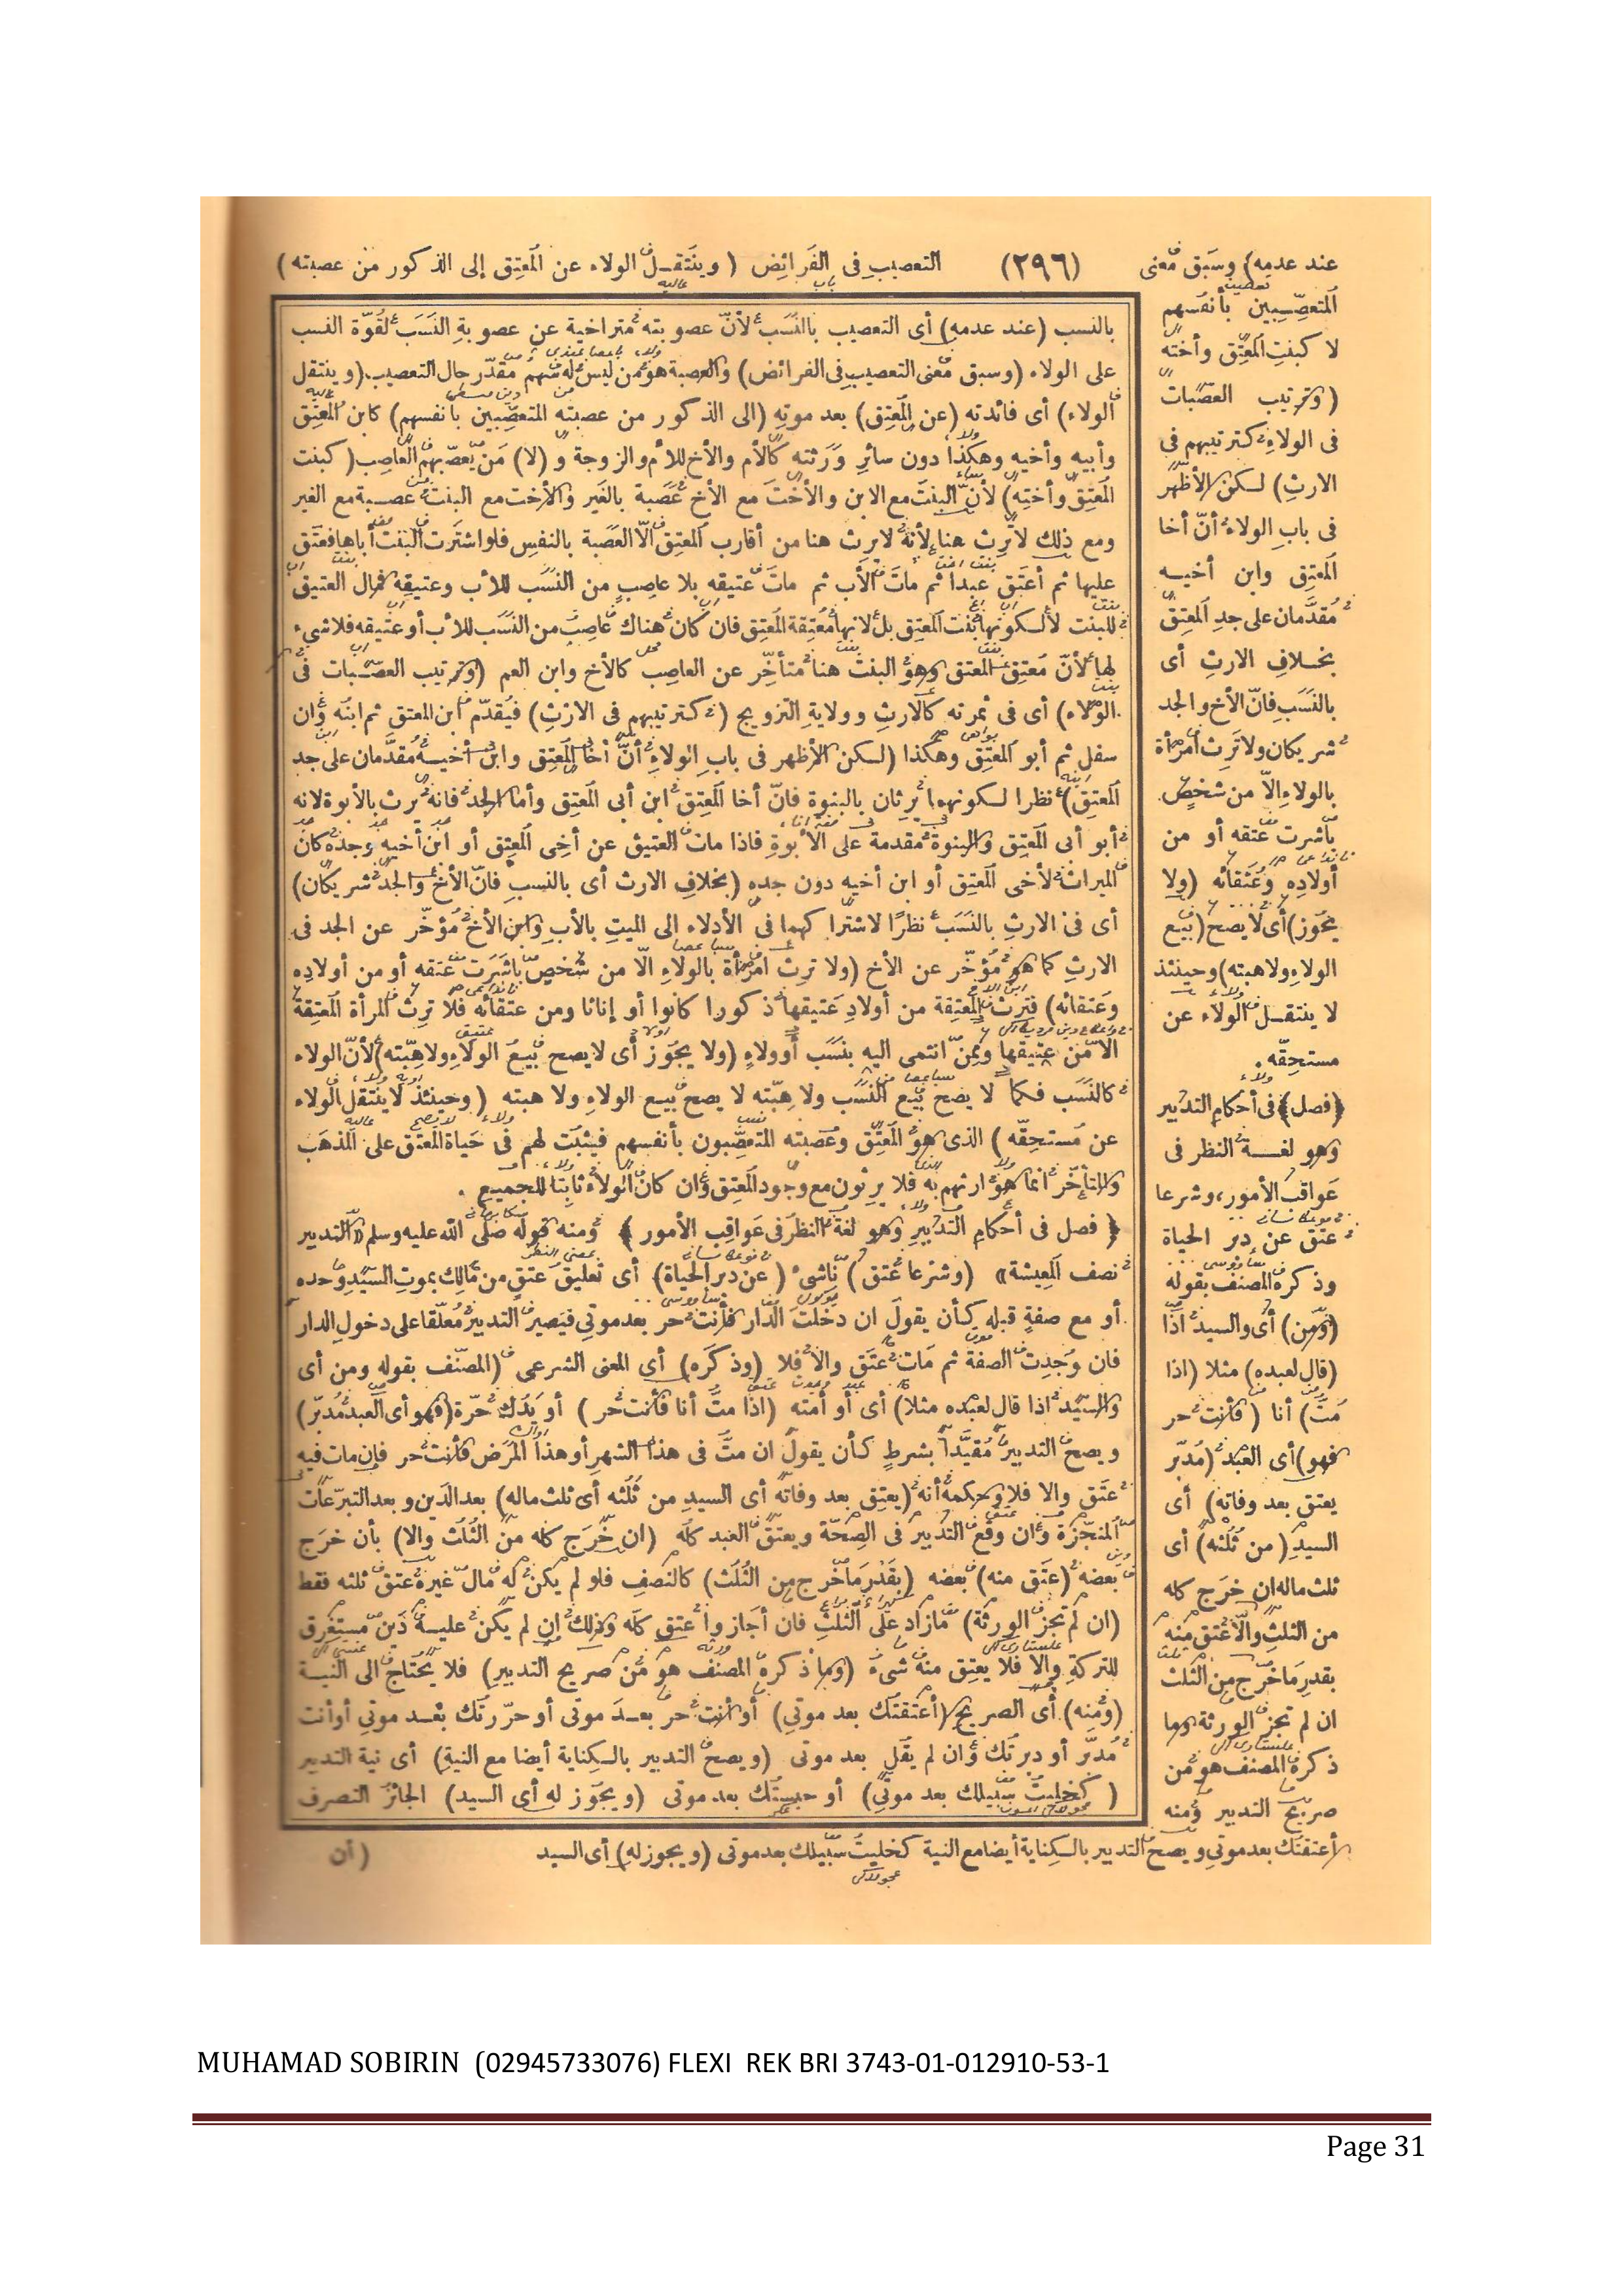 عند عدمه) وسبق معنى (٢٩٦) التعصيب فى الفرائض (وينتقل الولاء عن المعتق إلى الذكور من عصبته)
المتعصبين بأنفسهم
لا كبنت المعتق وأخته
(وترتيب العصبات
فى الولاء كترتيبهم فى
الارث) لسكن الأظهر
فى باب الولاء أن أخا
المعتق وابن أخيه
مقدمان على جد المعتق
بخلاف الارث أى
بالنسب فان الأخ والجد
شريكان ولا ترث امرأة
بالولاء إلا من شخص
باشرت عتقه أو من
أولاده وعتقائه (ولا
يجوز) أى لا يصح (بيع
الولاء ولا هبته) وحينئذ
لا ينتقل الولاء عن
مستحقه .
﴿فصل﴾ فى أحكام التدبير
وهو لغة النظر فى
عواقب الأمور، وشرعا
عتق عن دبر الحياة
وذكره المصنف بقوله
(ومن) أى والسيد اذا
(قال لعبده) مثلا (اذا
مت) أنا (فأنت حر
فهو) أى العبد (مدبر
يعتق بعد وفاته) أى
السيد (من ثلثه) أى
ثلث ماله ان خرج كله
من الثلث والا عتق منه
بقدر ما خرج من الثلث
ان لم تجز الورثة وما
ذكره المصنف هو من
صريح التدبير ومنه
بالنسب (عند عدمه) أى التعصيب بالنسب لأن عصوبته متراخية عن عصوبة النسب لقوة النسب
على الولاء (وسبق معنى التعصيب فى الفرائض) والعصبة هو من ليس له سهم مقدر حال التعصيب. (وينتقل
الولاء) أى فائدته (عن المعتق) بعد موته (الى الذكور من عصبته المتعصبين بأنفسهم) كابن المعتق
وأبيه وأخيه وهكذا دون سائر ورثته كالأم والأخ للأم والزوجة و (لا) من يعصبهم العاصب (كبنت
المعتق وأخته) لأن البنت مع الابن والأخت مع الأخ عصبة بالغير والأخت مع البنت عصبة مع الغير
ومع ذلك لا ترث هنا لأنه لا يرث هنا من أقارب المعتق الا العصبة بالنفس فلو اشترت البنت أباها فعتق
عليها ثم أعتق عبدا ثم مات الأب ثم مات عتيقه بلا عاصب من النسب للأب وعتيقه فمال العتيق
للبنت لا لكونها بنت المعتق بل لانها معتقة المعتق فان كان هناك عاصب من النسب للأب أو عتيقه فلا شىء
لها لأن معتق المعتق وهو البنت هنا متأخر عن العاصب كالأخ وابن العم (وترتيب العصبات فى
الولاء) أى فى ثمرته كالارث وولاية التزويج (كترتيبهم فى الارث) فيقدم ابن المعتق ثم ابنه وان
سفل ثم أبو المعتق وهكذا (لسكن الأظهر فى باب الولاء أن أخا المعتق وابن أخيه مقدمان على جد
المعتق) نظرا لسكونهما يرثان بالبنوة فان أخا المعتق ابن أبى المعتق وأما الجد فانه يرث بالأبوة لانه
أبو أبى المعتق والبنوة مقدمة على الأبوة فاذا مات العتيق عن أخى المعتق أو ابن أخيه وجده كان
الميراث لأخى المعتق أو ابن أخيه دون جده (بخلاف الارث أى بالنسب فان الأخ والجد شريكان)
أى فى الارث بالنسب نظرًا لاشتراكهما فى الأدلاء الى الميت بالأب وابن الأخ مؤخر عن الجد فى
الارث كما هو مؤخر عن الأخ (ولا ترث امرأة بالولاء الا من شخص باشرت عتقه أو من أولاده
وعتقائه) فترث المعتقة من أولاد عتيقها ذكورا كانوا أو إناثا ومن عتقائه فلا ترث المرأة المعتقة
الا من عتيقها وممن انتمى اليه بنسب أو ولاء (ولا يجوز أى لا يصح بيع الولاء ولا هبته) لأن الولاء
كالنسب فكما لا يصح بيع النسب ولا هبته لا يصح بيع الولاء ولا هبته (وحينئذ لا ينتقل الولاء
عن مستحقه) الذى هو المعتق وعصبته المتعصبون بأنفسهم فيثبت لهم فى حياة المعتق على المذهب
والمتأخر انما هو ارثهم به فلا يرثون مع وجود المعتق وان كان الولاء ثابتا للجميع .
﴿ فصل فى أحكام التدبير وهو لغة النظر فى عواقب الأمور ﴾ ومنه قوله صلى الله عليه وسلم «التدبير
نصف المعيشة» (وشرعا عتق) ناشئ (عن دبر الحياة) أى تعليق عتق من مالك بموت السيد وحده
أو مع صفة قبله كأن يقول ان دخلت الدار فأنت حر بعد موتى فيصير التدبير معلقا على دخول الدار
فان وجدت الصفة ثم مات عتق والا فلا (وذكره) أى المعنى الشرعى (المصنف بقوله ومن أى
والسيد اذا قال لعبده مثلا) أى أو أمته (اذا مت أنا فأنت حر ) أو يدك حرة (فهو أى العبد مدبر)
ويصح التدبير مقيدا بشرط كأن يقول ان مت فى هذا الشهر أو هذا المرض فأنت حر فان مات فيه
عتق والا فلا وحكمه أنه (يعتق بعد وفاته أى السيد من ثلثه أى ثلث ماله) بعد الدين وبعد التبرعات
المنجزة وان وقع التدبير فى الصحة ويعتق العبد كله (ان خرج كله من الثلث والا) بأن خرج
بعضه (عتق منه) بعضه (بقدر ما خرج من الثلث) كالنصف فلو لم يكن له مال غيره عتق ثلثه فقط
(ان لم تجز الورثة) مازاد على الثلث فان أجازوا عتق كله وذلك ان لم يكن عليه دين مستغرق
للتركة والا فلا يعتق منه شىء (وما ذكره المصنف هو من صريح التدبير) فلا يحتاج الى النية
(ومنه) أى الصريح (أعتقتك بعد موتى) أو أنت حر بعد موتى أو حررتك بعد موتى أو أنت
مدبر أو دبرتك وان لم يقل بعد موتى (ويصح التدبير بالسكناية أيضا مع النية) أى نية التدبير
(كخليت سبيلك بعد موتى) أو حبستك بعد موتى (ويجوز له أى السيد) الجائز التصرف
أعتقتك بعد موتى ويصح التدبير بالسكناية أيضا مع النية كخليت سبيلك بعد موتى (ويجوز له) أى السيد (أن
MUHAMAD SOBIRIN (02945733076) FLEXI REK BRI 3743-01-012910-53-1
Page 31